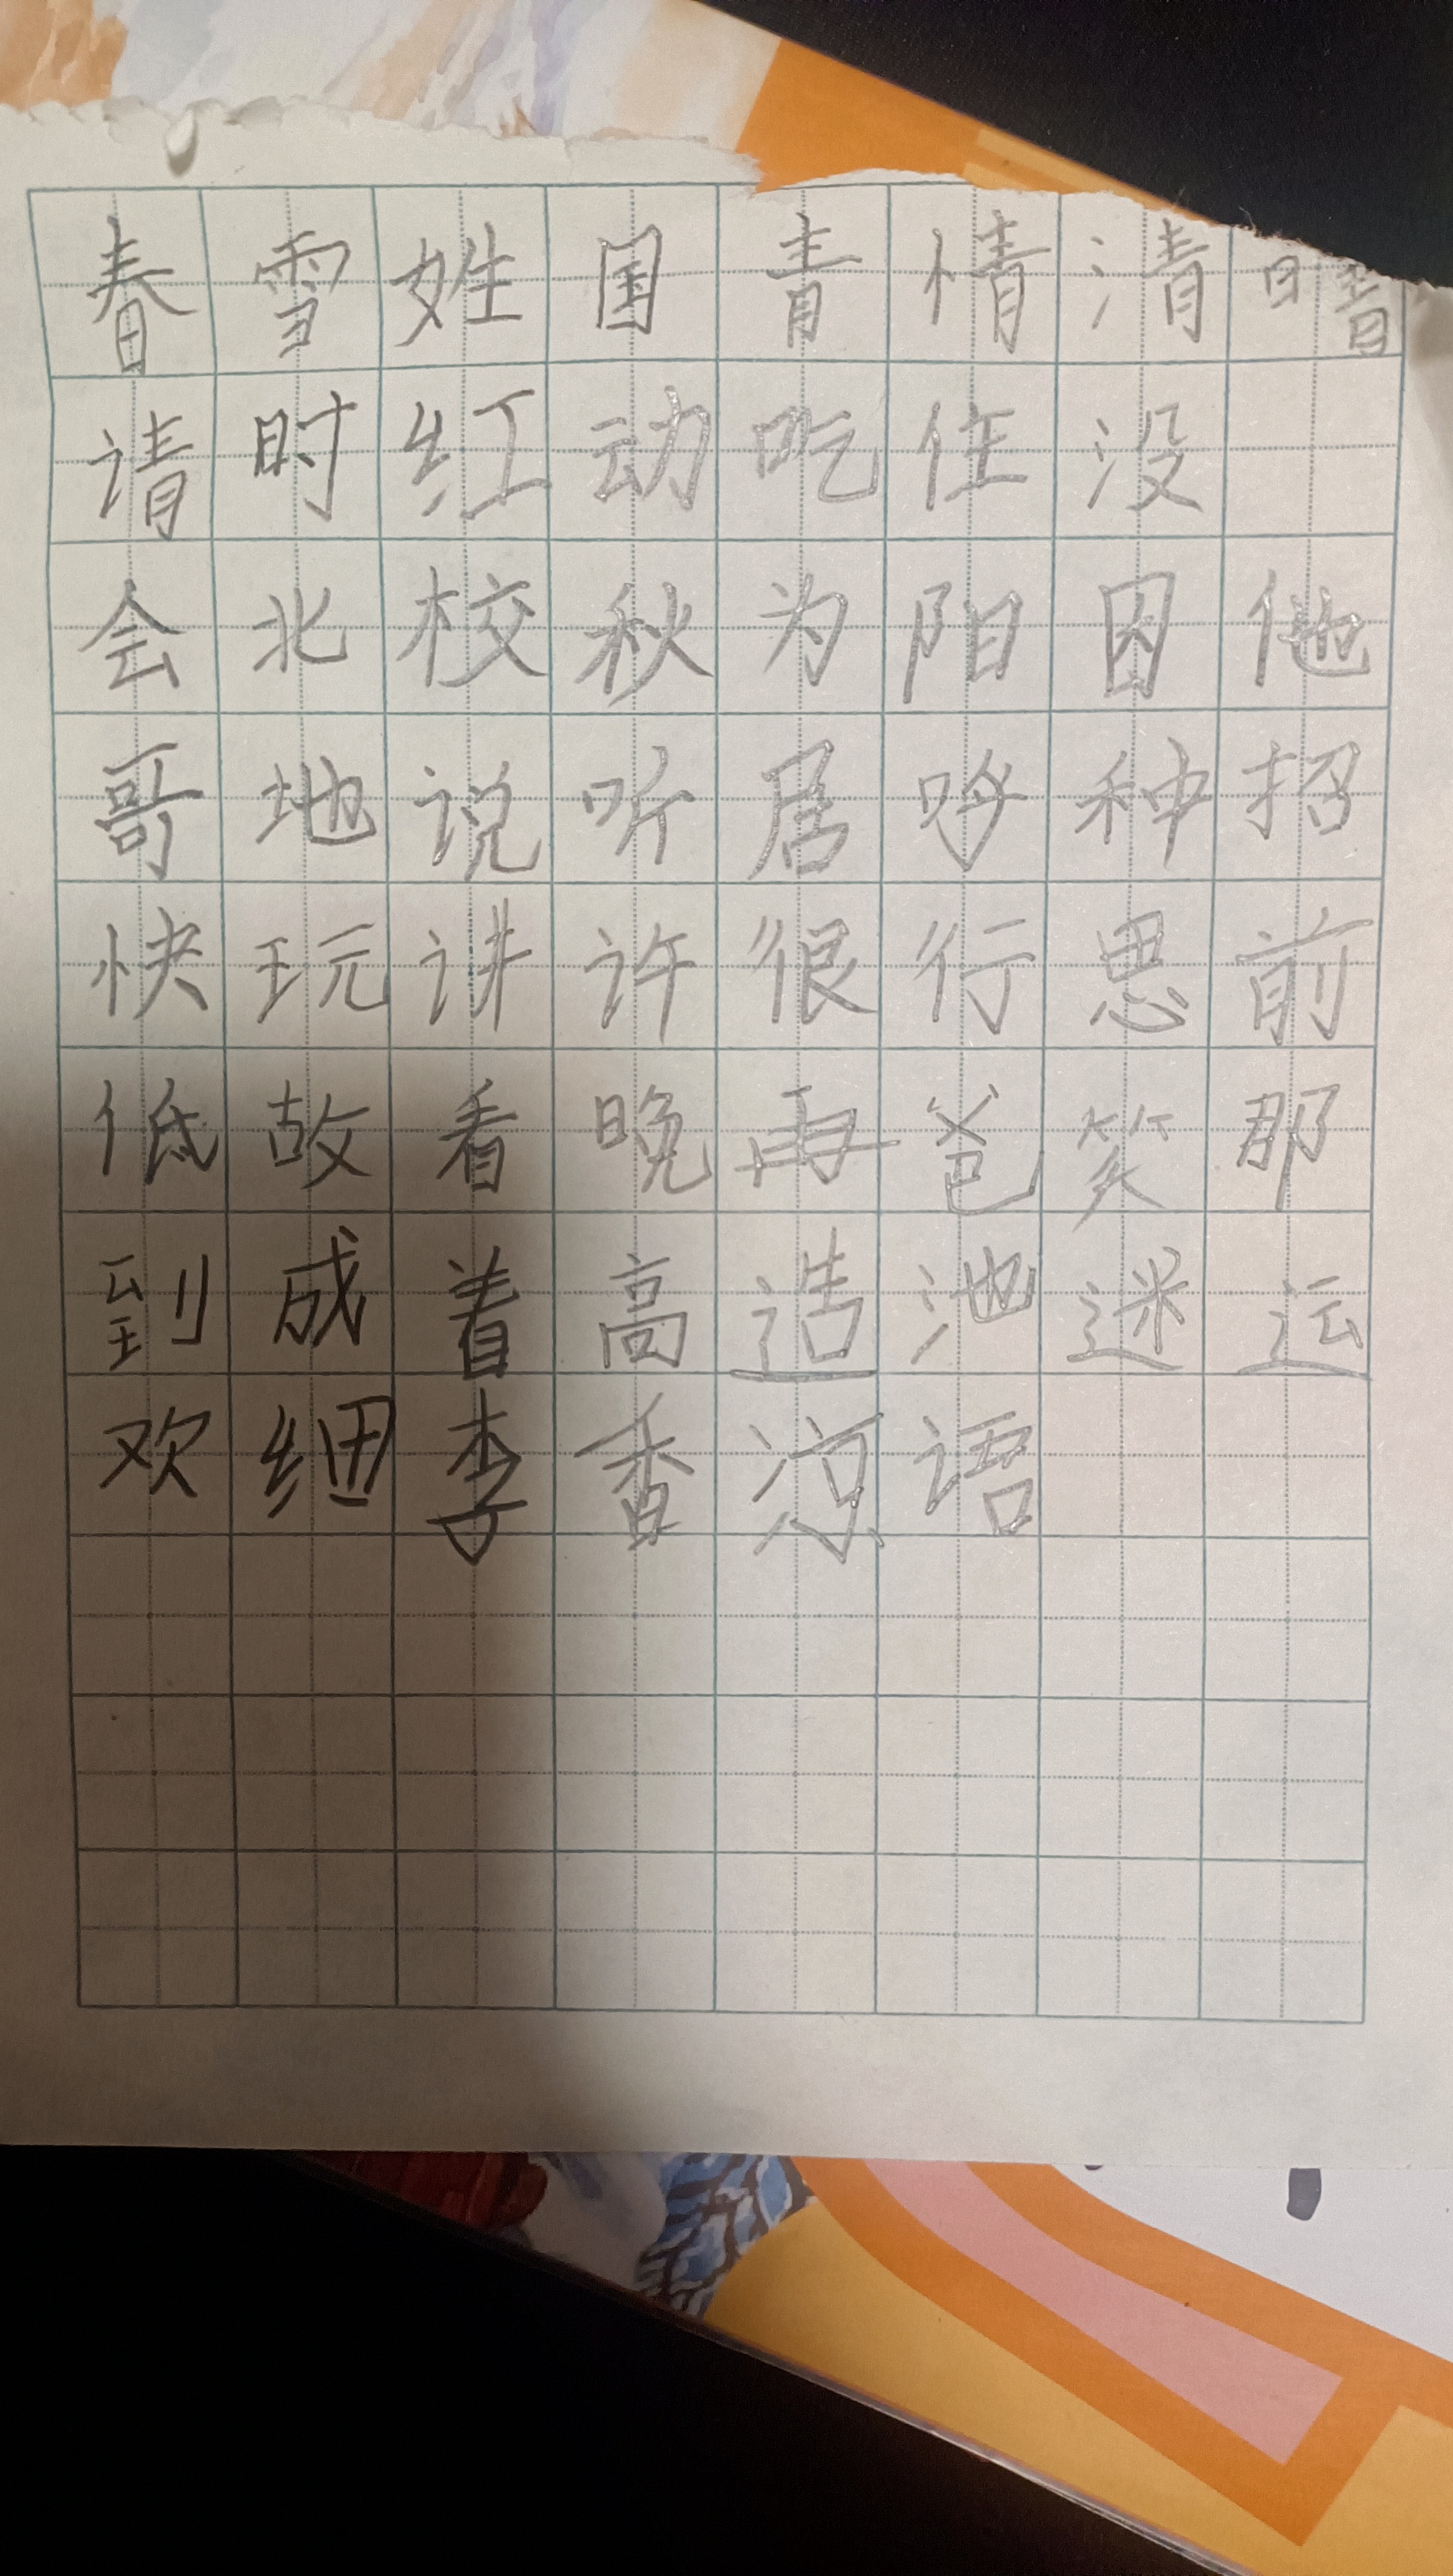 春雪姓国青情清晴
请时红动吃住没
会北校秋为阳因他
哥地说听居呼种招
快玩讲许很行思前
低故看晚再爸笑那
到成着高造池迷运
欢细李香凉语